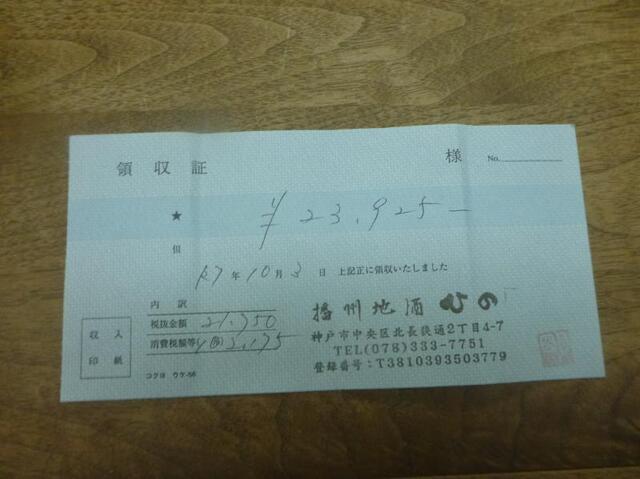 領収証 様 No.
★ ¥23,925-
但
R7年10月3日 上記正に領収いたしました
内訳
税抜金額 21,750
消費税額等( 10 %) 2,175
収入
印紙
コクヨ ウケ-56
播州地酒 ひの
神戸市中央区北長狭通2丁目4-7
TEL(078)333-7751
登録番号:T3810393503779